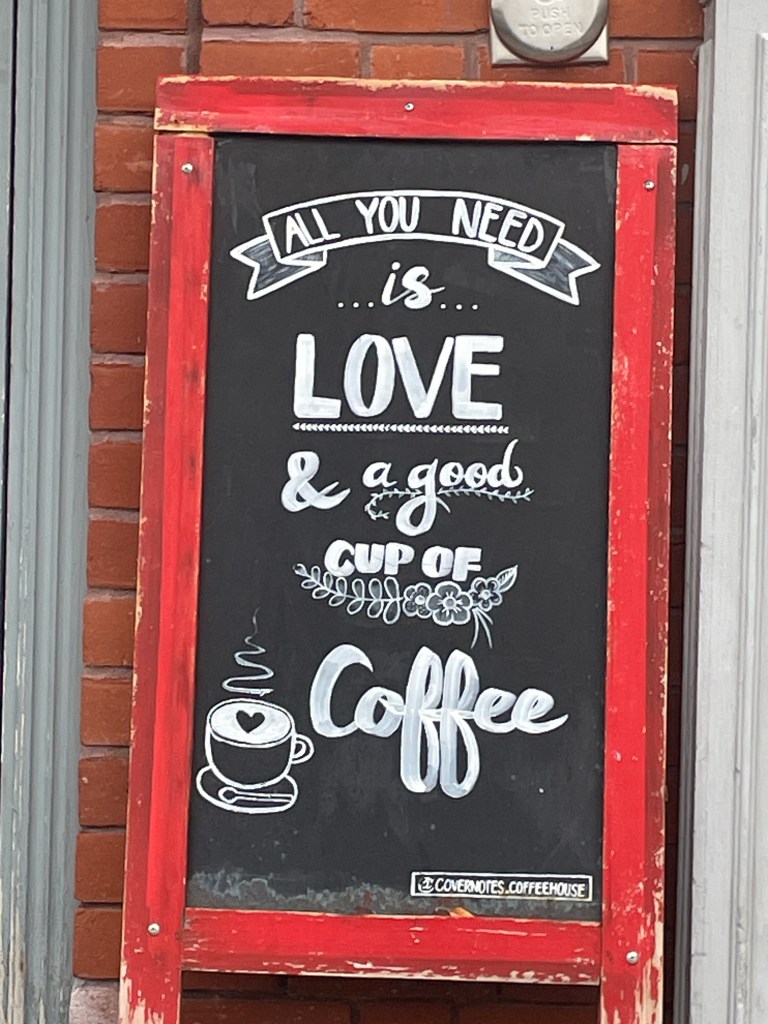 PUSH
TO OPEN
ALL YOU NEED
...is...
LOVE
& a good
CUP OF
Coffee
COVERNOTES.COFFEEHOUSE